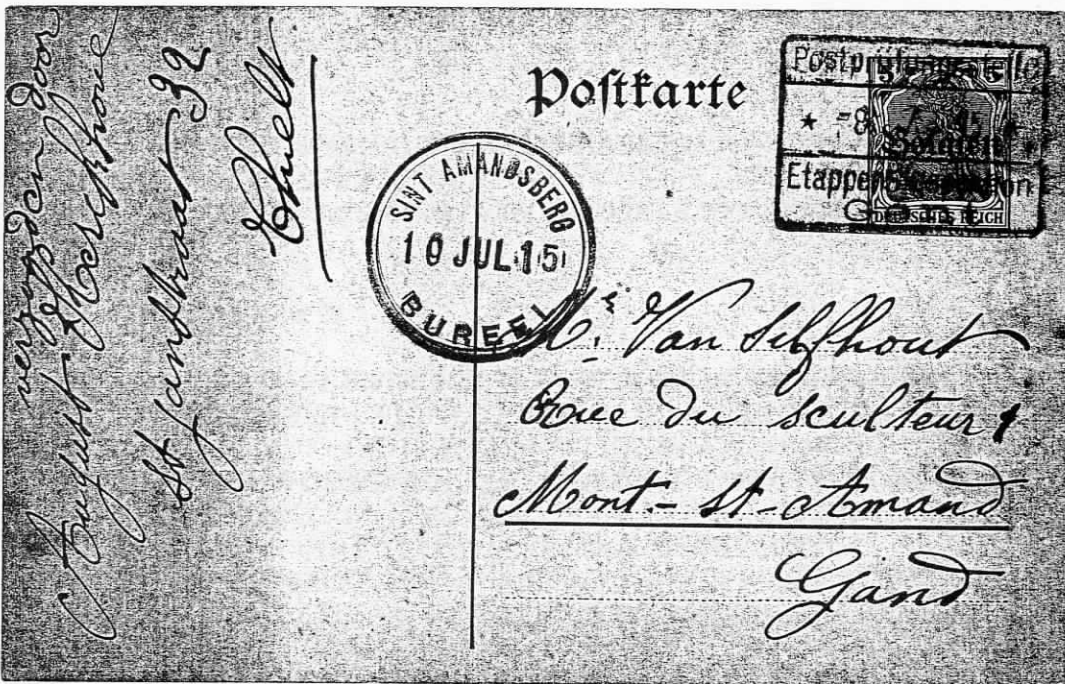 verzonden door
August
St Janstraat 32
Thielt
Postkarte
SINT AMANDSBERG
10 JUL 15
BUREEL
Postprüfungsstelle
5 5
* -8. 7. *
Etappen-Inspektion
DEUTSCHES REICH
Mr Van Selfhout
Rue du sculteur 1
Mont.- St - Amand
Gand